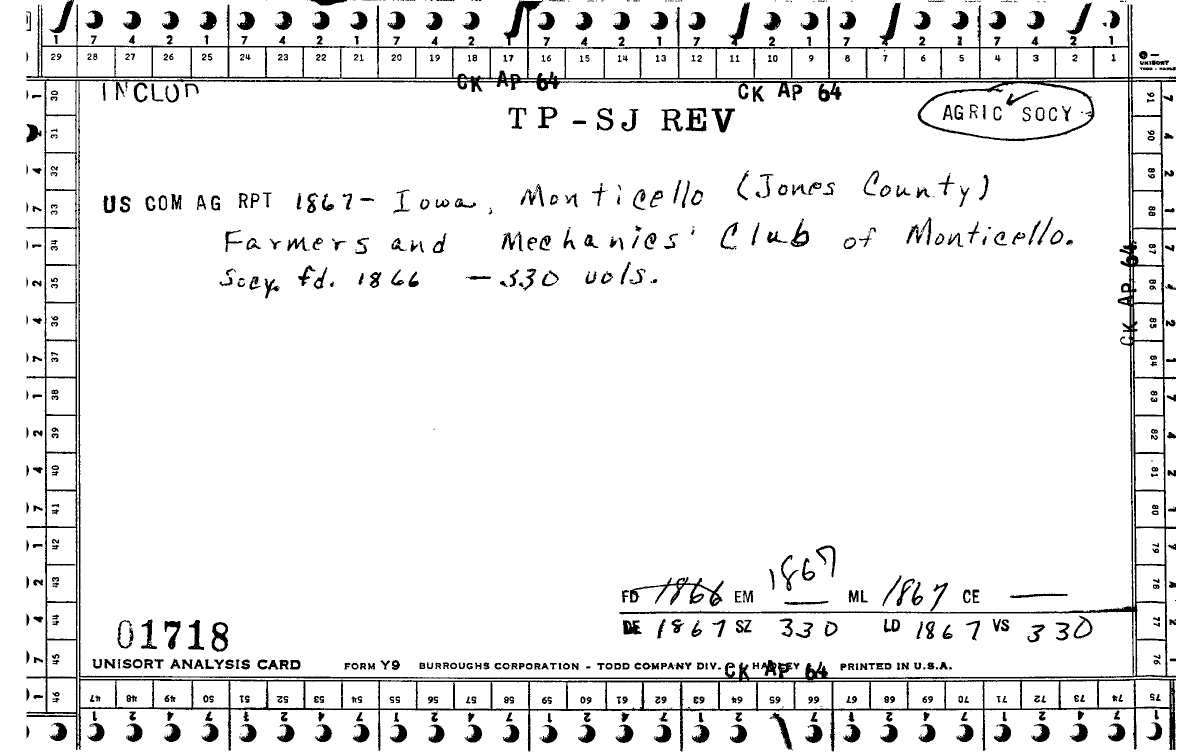 7 4 2 1 7 4 2 1 7 4 2 1 7 4 2 1 7 4 2 1 7 4 2 1 7 4 2 1
29 28 27 26 25 24 23 22 21 20 19 18 17 16 15 14 13 12 11 10 9 8 7 6 5 4 3 2 1
UNISORT
CK AP 64 CK AP 64
TP-SJ REV
AGRIC SOCY
US COM AG RPT 1867- Iowa, Monticello (Jones County)
Farmers and Mechanics' Club of Monticello.
Socy. fd. 1866 - 330 vols.
CK AP 64
30 31 32 33 34 35 36 37 38 39 40 41 42 43 44 45 46
91 90 89 88 87 86 85 84 83 82 81 80 79 78 77 76 75
1867
FD 1866 EM — ML 1867 CE —
DE 1867 SZ 330 LD 1867 VS 330
01718
UNISORT ANALYSIS CARD FORM Y9 BURROUGHS CORPORATION - TODD COMPANY DIV. CK AP 64 PRINTED IN U.S.A.
47 48 49 50 51 52 53 54 55 56 57 58 59 60 61 62 63 64 65 66 67 68 69 70 71 72 73 74 75